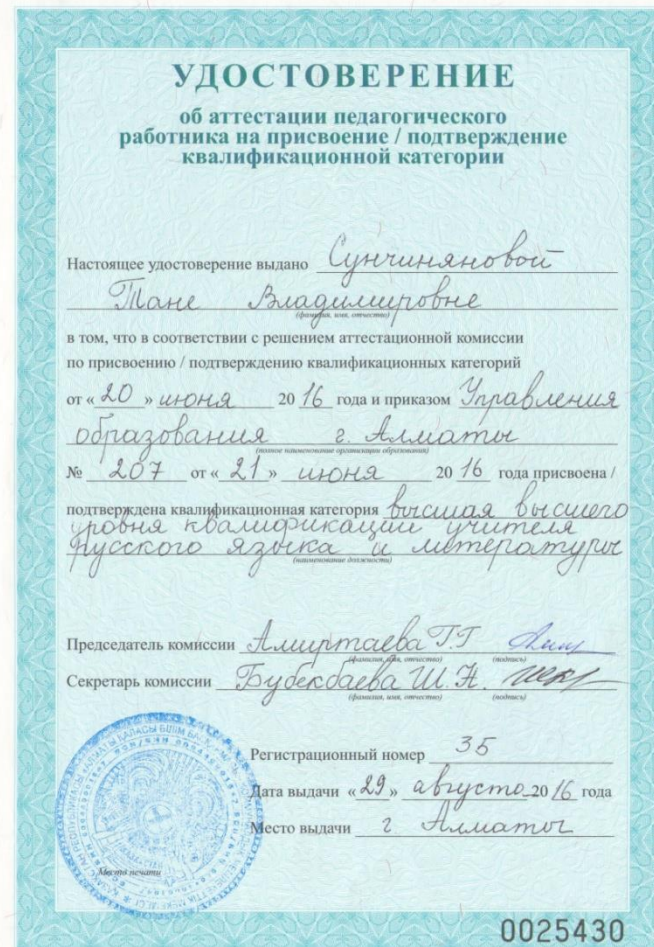 УДОСТОВЕРЕНИЕ
об аттестации педагогического
работника на присвоение / подтверждение
квалификационной категории
Настоящее удостоверение выдано Сунчиняновой
Тане Владимировне
(фамилия, имя, отчество)
в том, что в соответствии с решением аттестационной комиссии
по присвоению / подтверждению квалификационных категорий
от « 20 » июня 20 16 года и приказом Управления
образования г. Алматы
(полное наименование организации образования)
№ 207 от « 21 » июня 20 16 года присвоена /
подтверждена квалификационная категория высшая высшего
уровня квалификации учителя
русского языка и литературы
(наименование должности)
Председатель комиссии Амиртаева Г.Г
(фамилия, имя, отчество) (подпись)
Секретарь комиссии Бубекбаева Ш.Н.
(фамилия, имя, отчество) (подпись)
Регистрационный номер 35
Дата выдачи « 29 » августа 20 16 года
Место выдачи г Алматы
Место печати
0025430